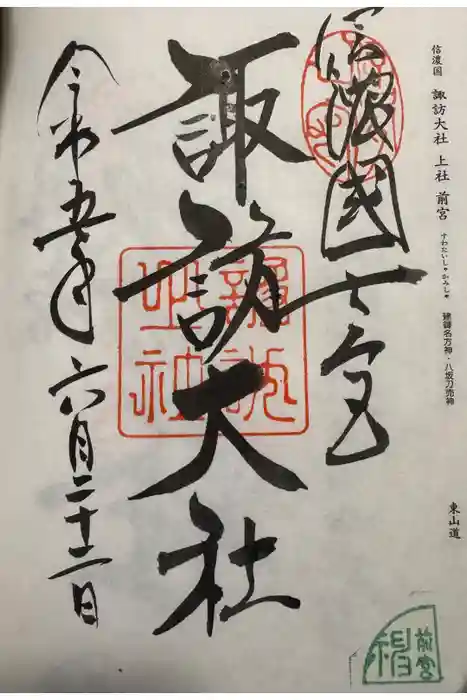 信濃国　諏訪大社　上社　前宮
すわたいしゃかみしゃ
建御名方神・八坂刀売神
東山道
信濃國一之宮
諏訪大社
令和五年六月二十二日
前宮